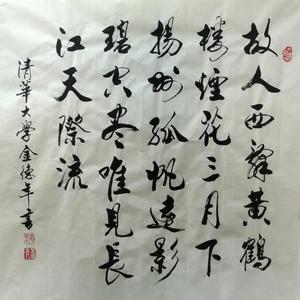 故人西辭黃鶴
樓煙花三月下
揚州孤帆遠影
碧空盡唯見長
江天際流
清華大學金德年書